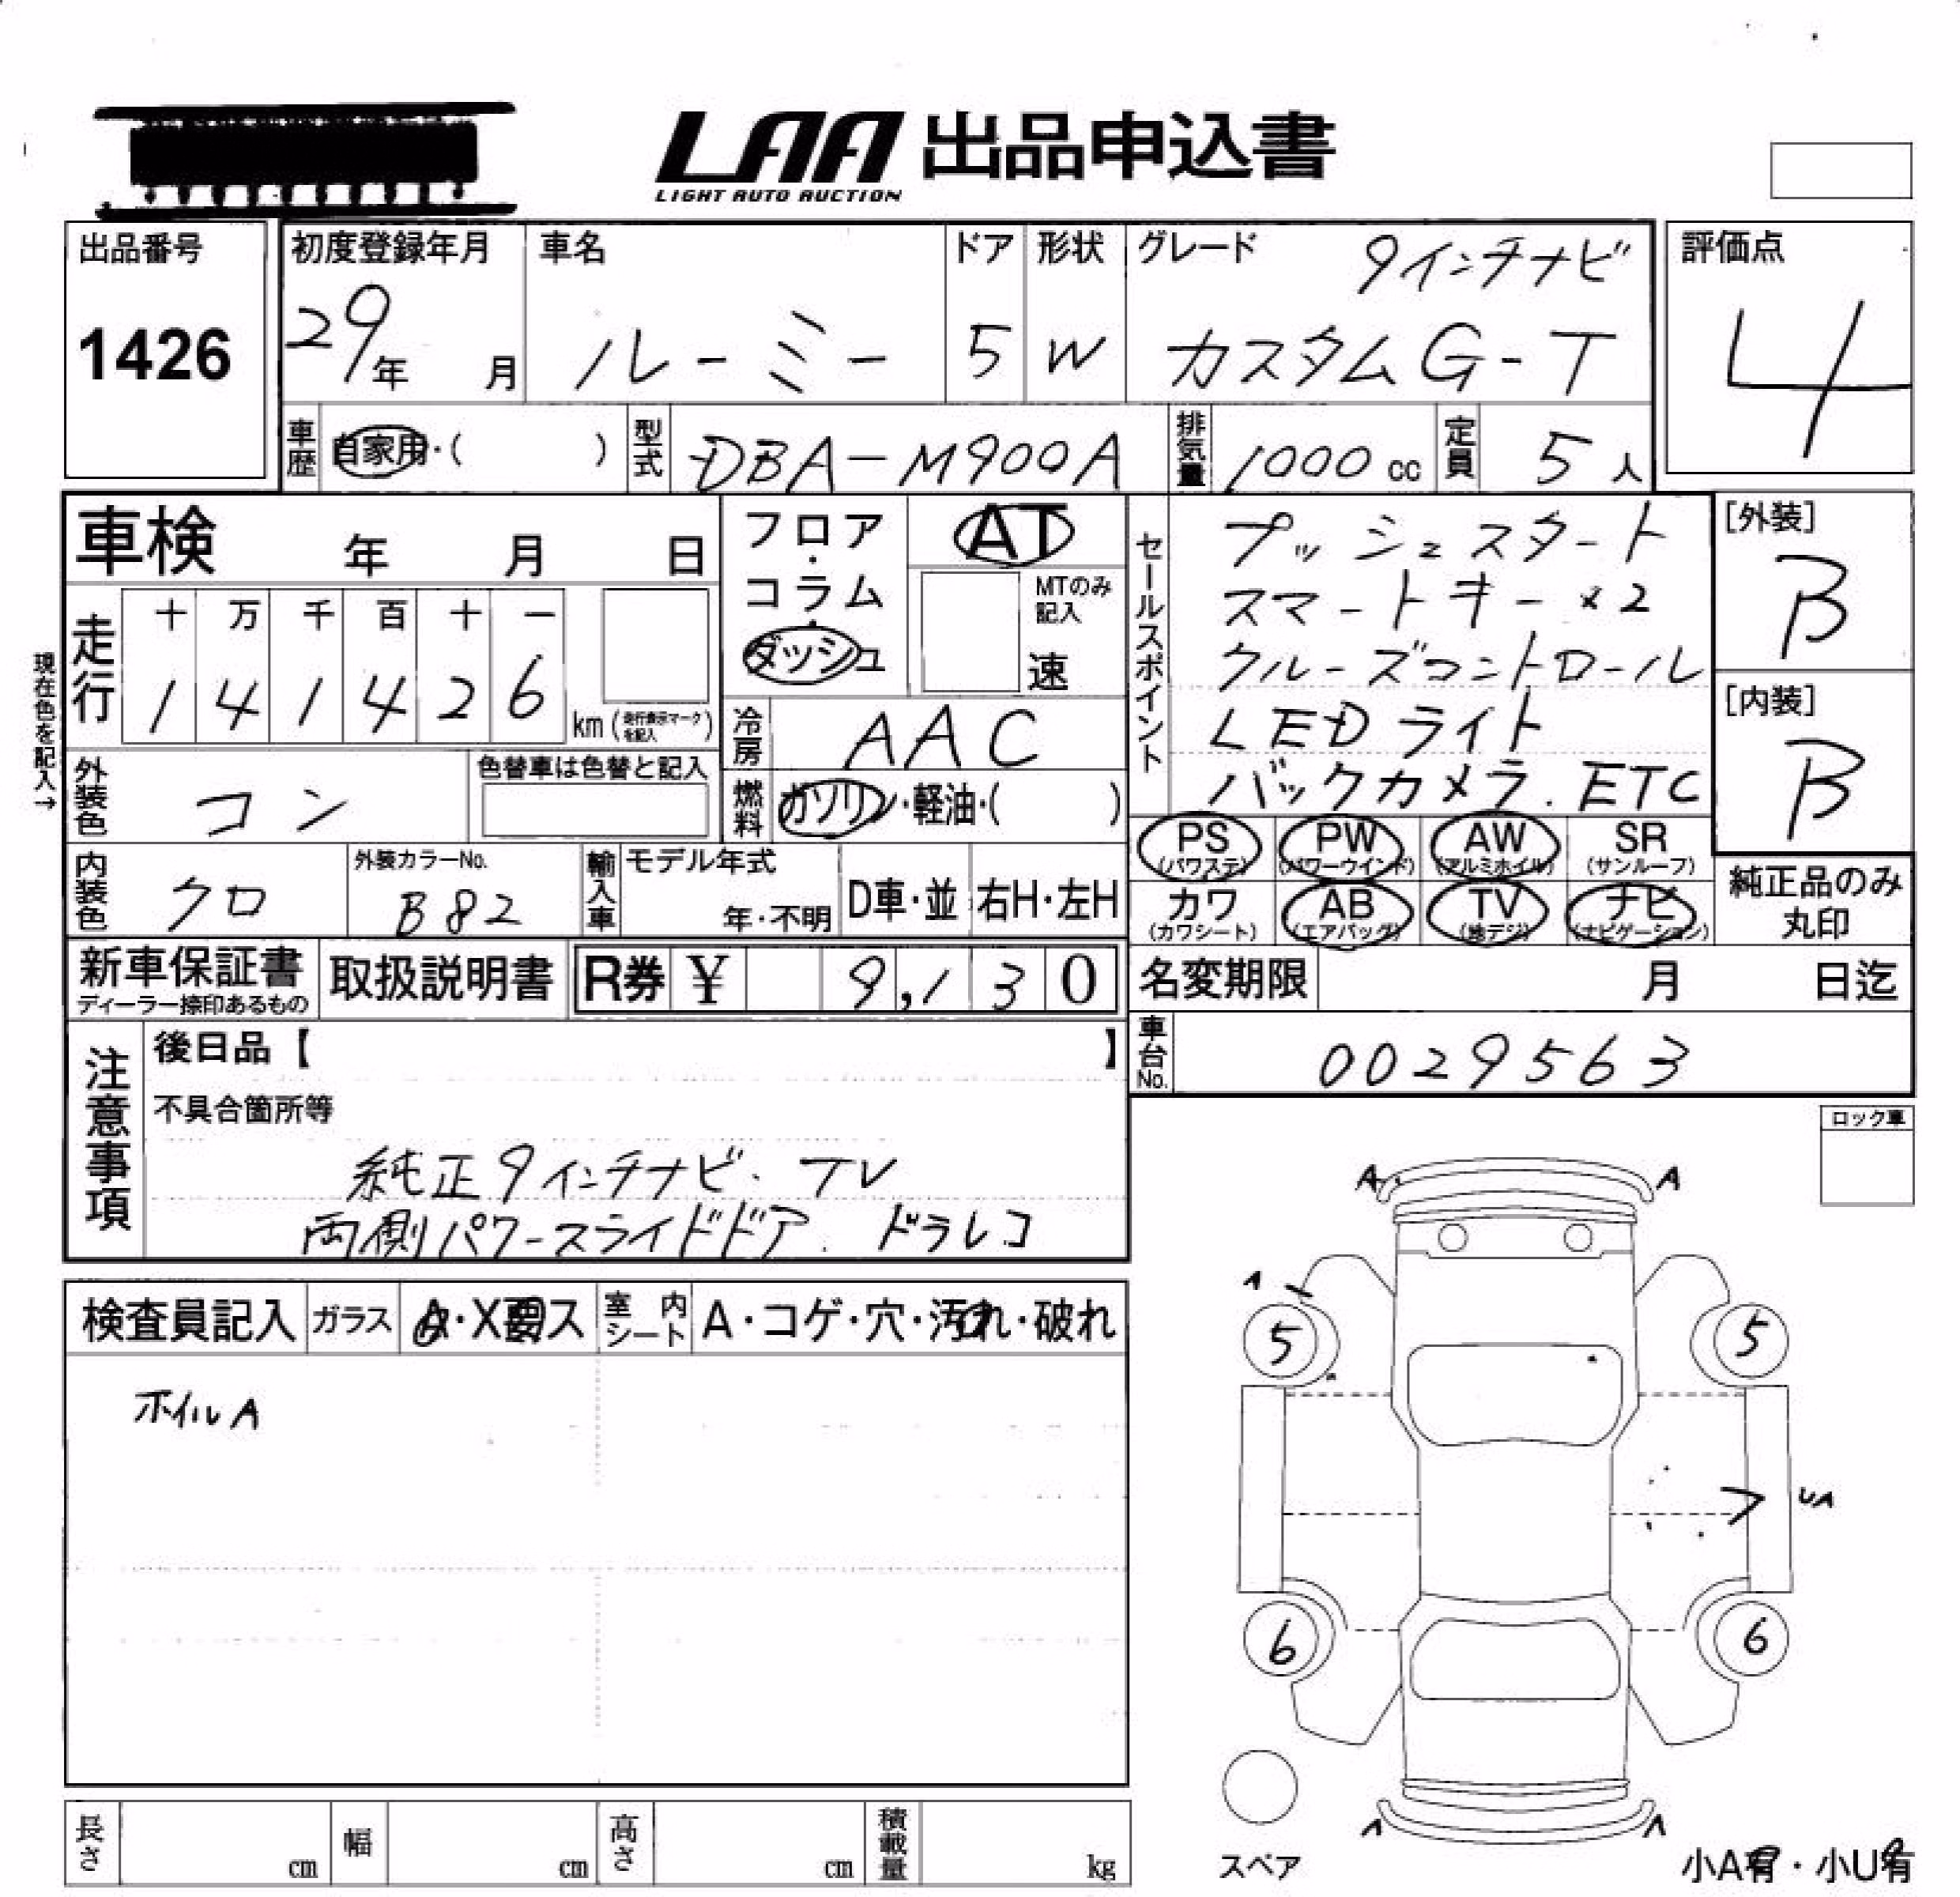 LAA 出品申込書
LIGHT AUTO AUCTION
出品番号
1426
初度登録年月
29年 月
車名
ルーミー
ドア
5
形状
W
グレード
9インチナビ
カスタムG-T
評価点
4
車歴 自家用・( )
型式 DBA-M900A
排気量 1000cc
定員 5人
車検 年 月 日
フロア・コラム・ダッシュ
AT
MTのみ記入
速
セールスポイント
プッシュスタート
スマートキー×2
クルーズコントロール
LEDライト
バックカメラ. ETC
[外装]
B
[内装]
B
現在色を記入→
走行
十 万 千 百 十 一
1 4 1 4 2 6 km (走行表示マークを記入)
冷房 AAC
外装色 コン
色替車は色替と記入
燃料 ガソリン・軽油・( )
PS (パワステ)
PW (パワーウインド)
AW (アルミホイル)
SR (サンルーフ)
カワ (カワシート)
AB (エアバッグ)
TV (地デジ)
ナビ (ナビゲーション)
純正品のみ丸印
内装色 クロ
外装カラーNo.
B82
輸入車
モデル年式
年・不明
D車・並
右H・左H
新車保証書
ディーラー捺印あるもの
取扱説明書
R券 ¥ 9,130
名変期限 月 日迄
車台No. 0029563
注意事項
後日品【 】
不具合箇所等
純正9インチナビ. TV
両側パワースライドドア. ドラレコ
ロック車
検査員記入
ガラス
室内シート
A・コゲ・穴・汚れ・破れ
ホイルA
A A
A
5 5
UA
6 6
A A
スペア
小A有・小U有
長さ cm
幅 cm
高さ cm
積載量 kg